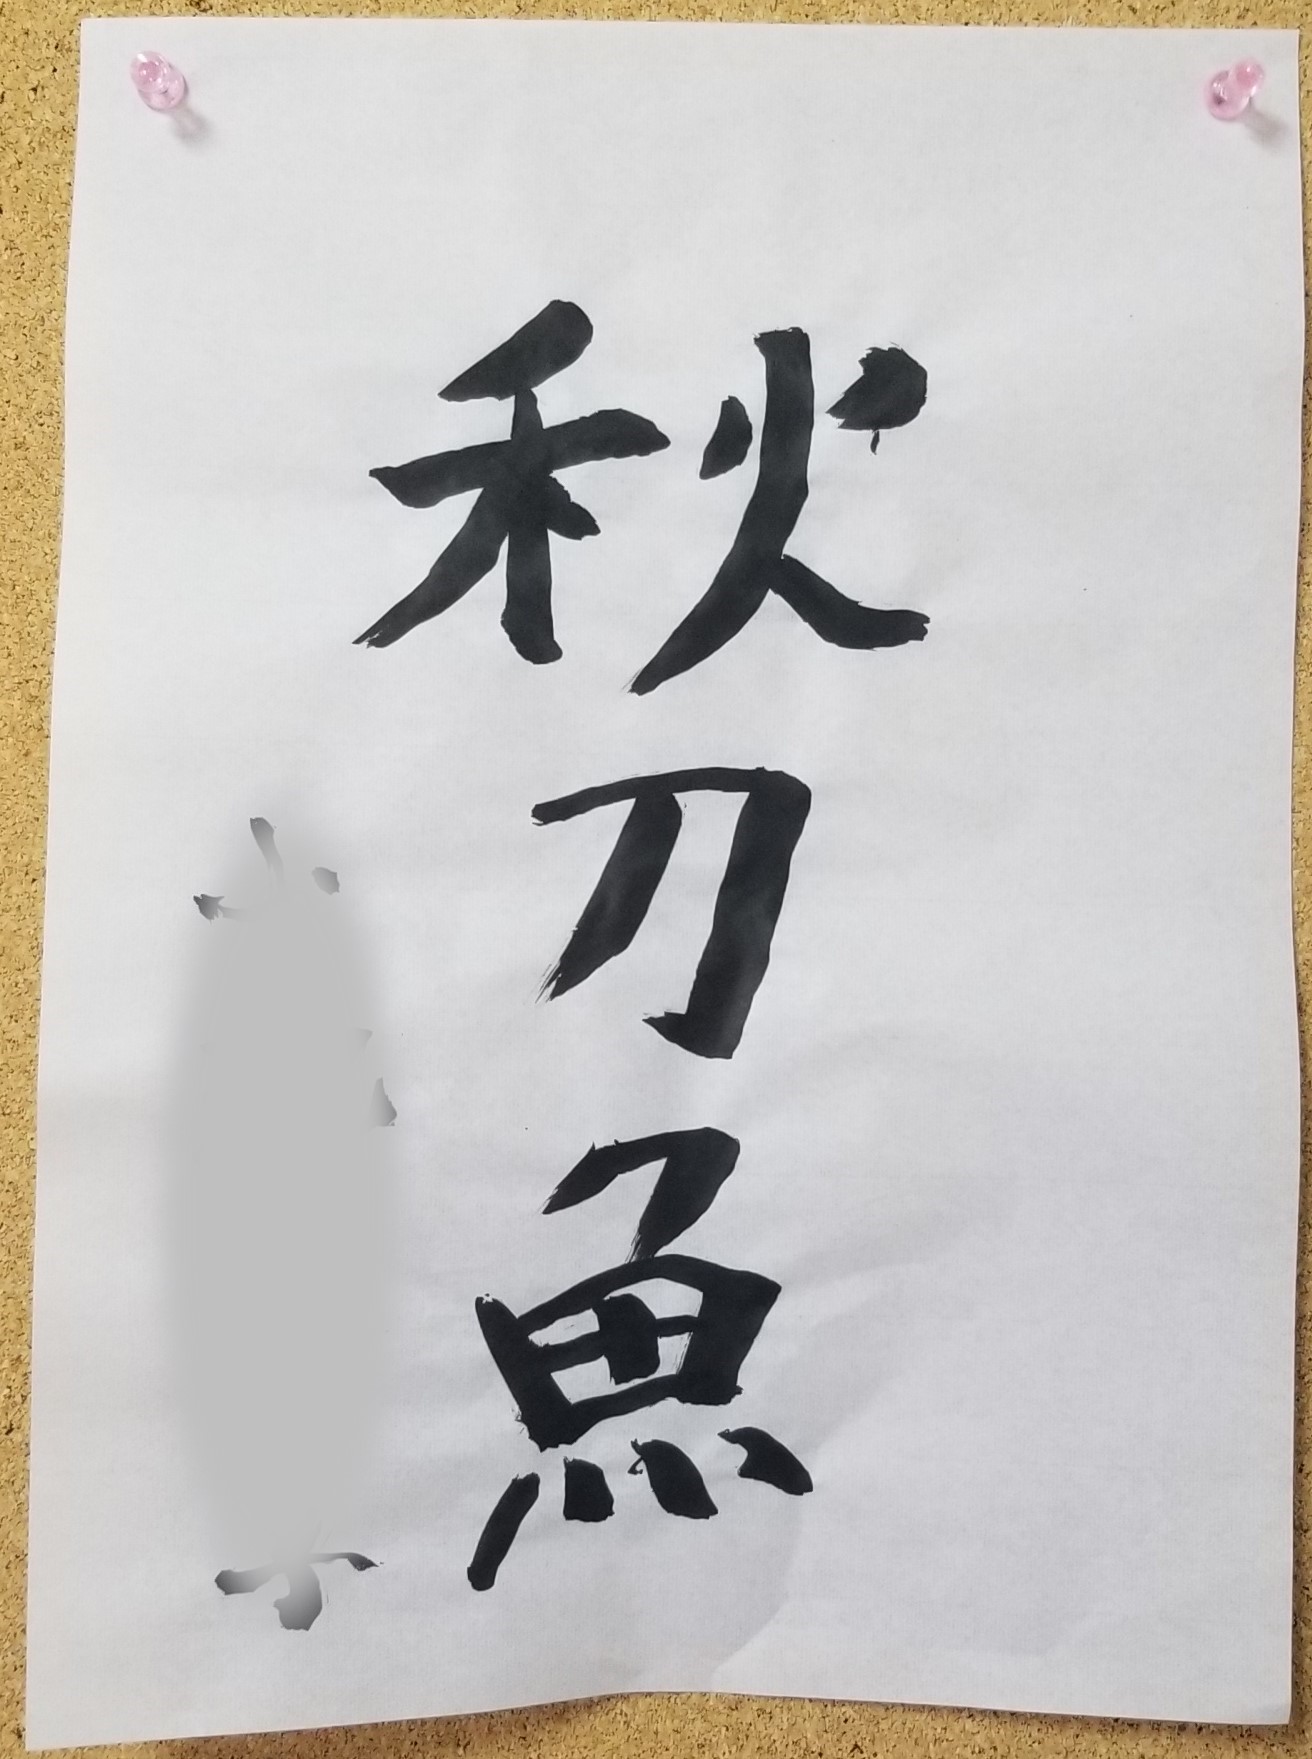 秋刀魚